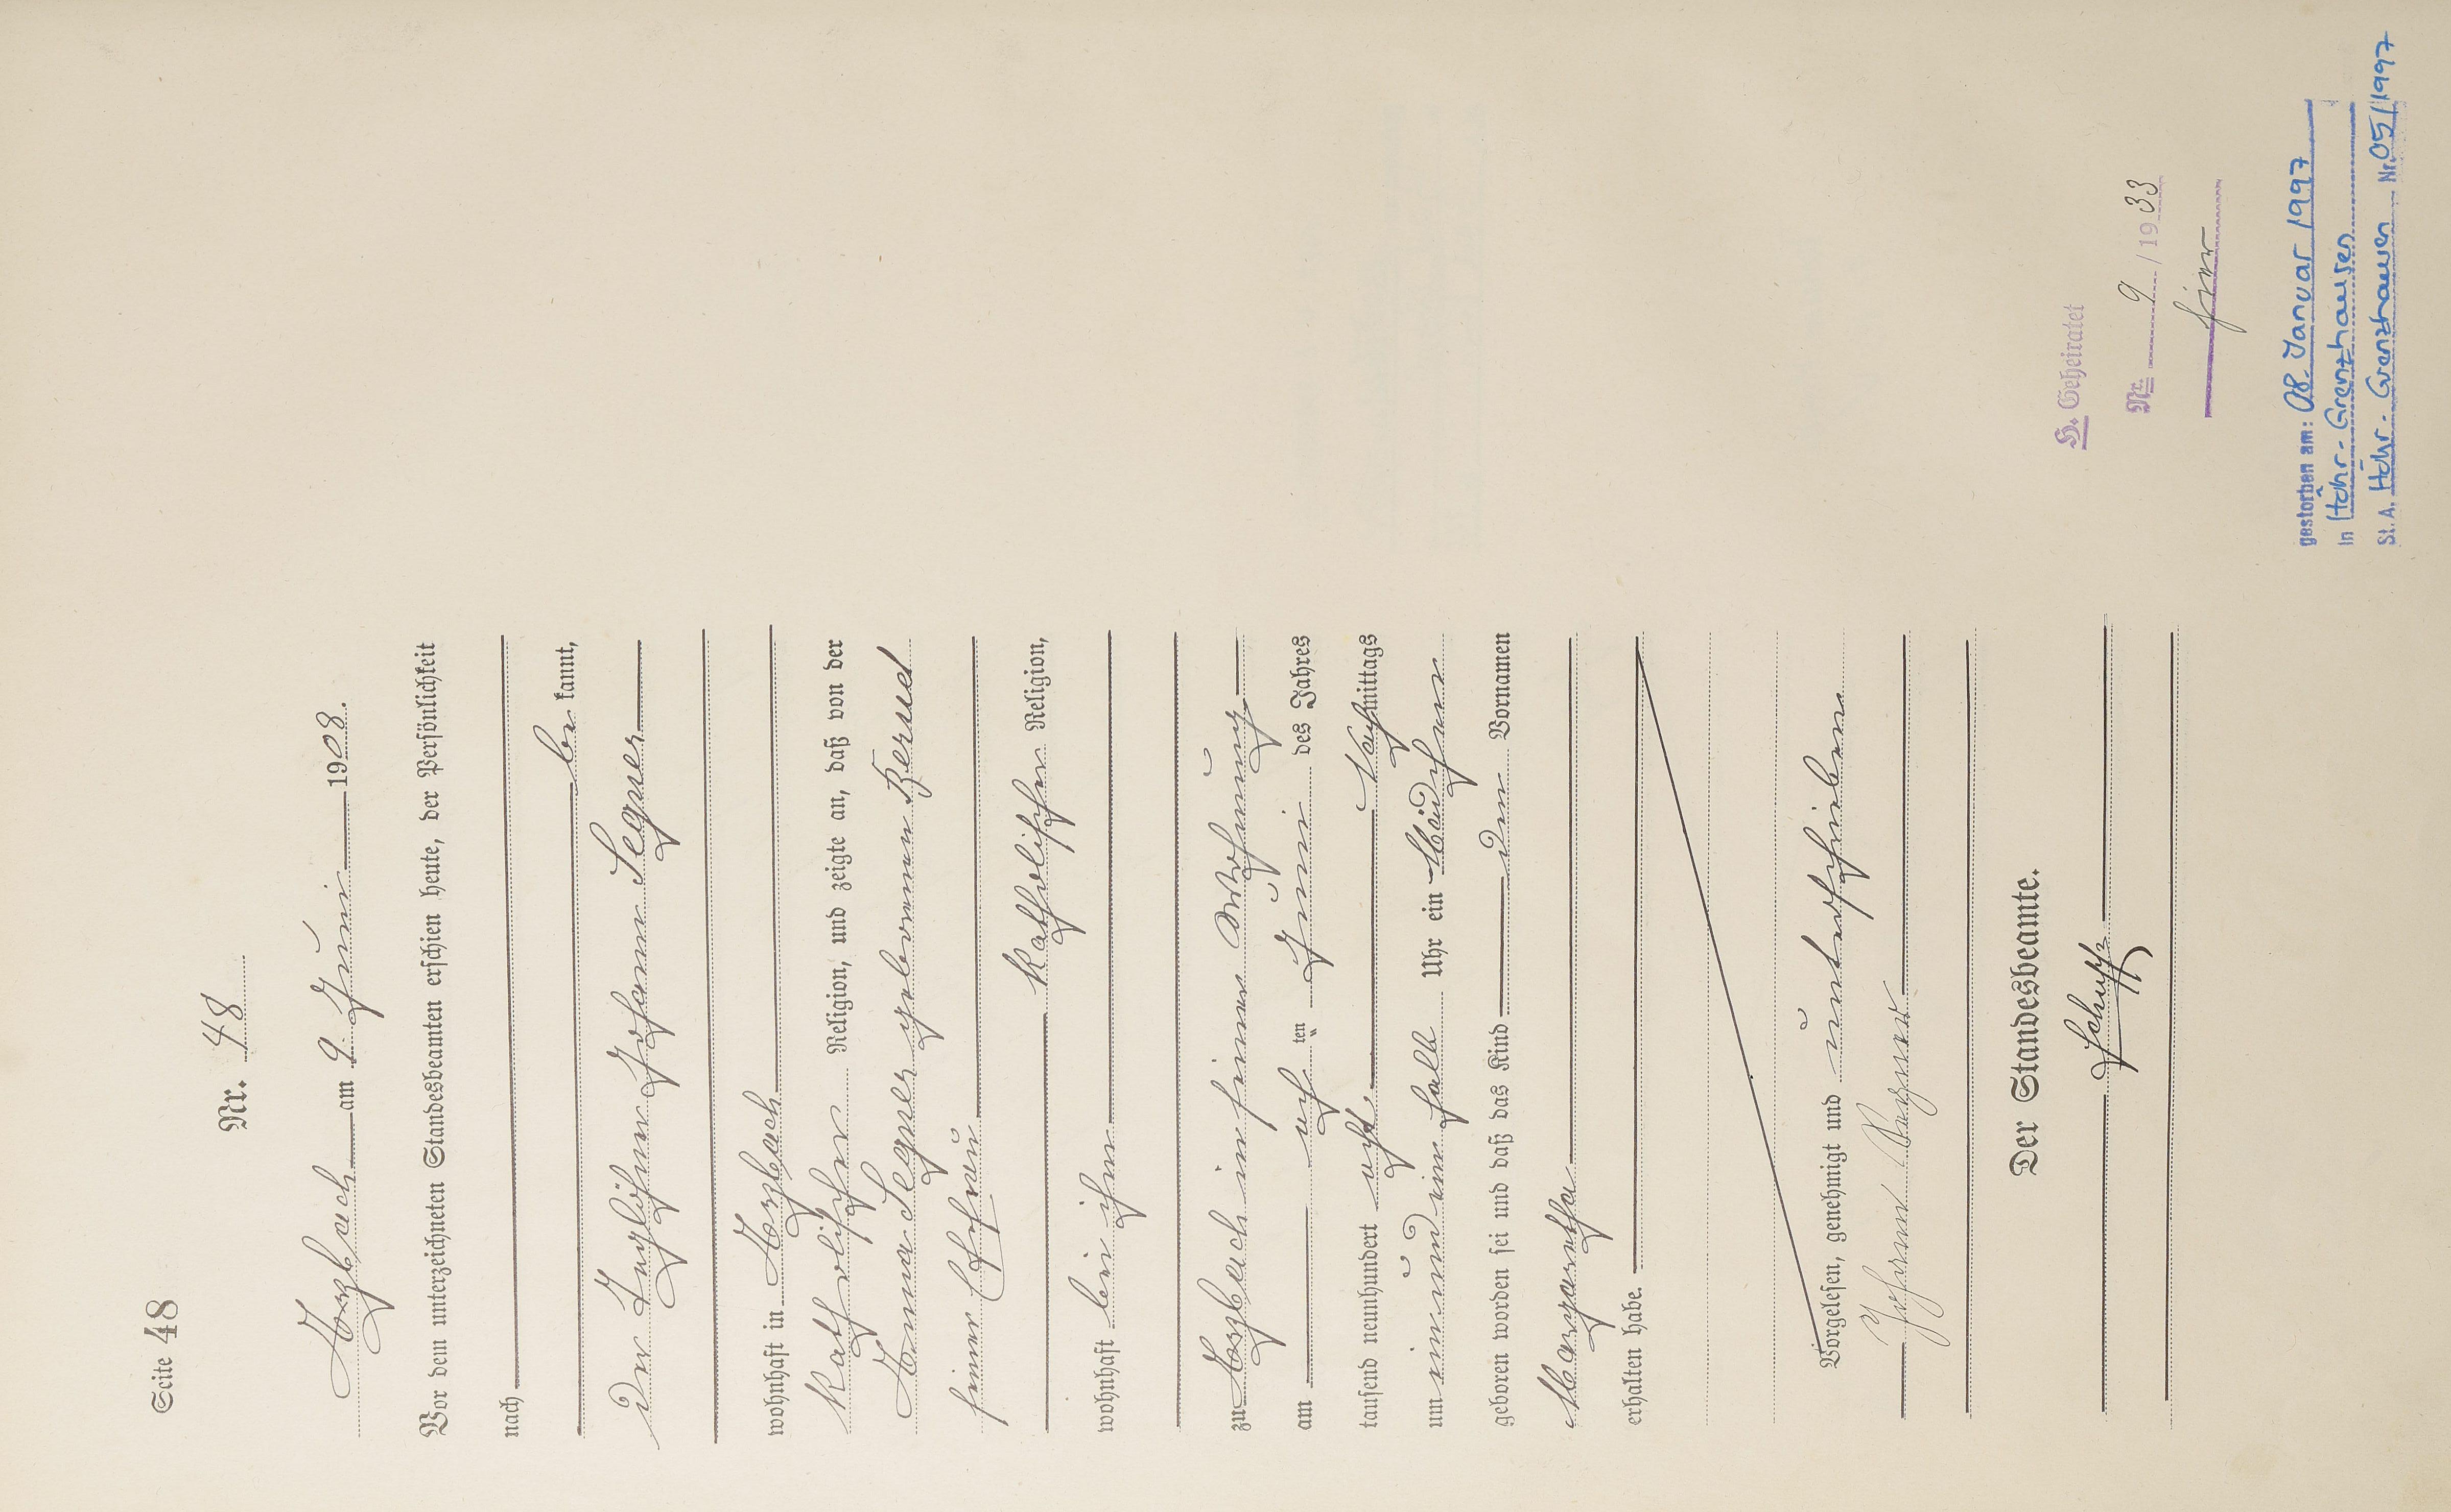 Seite 48
Nr. 48
Arzbach am 9. Juni 1908.
Vor dem unterzeichneten Standesbeamten erschien heute, der Persönlichkeit
nach
be kannt,
der Taglöhner Johann Segner
wohnhaft in Arzbach
katholischer Religion, und zeigte an, daß von der
Anna Segner geborenen Bernd
seiner Ehefrau
katholischer Religion,
wohnhaft bei ihm
zu Arzbach in seiner Wohnung
am acht ten Juni des Jahres
tausend neunhundert acht Nachmittags
um ein und ein halb Uhr ein Mädchen
geboren worden sei und daß das Kind den Vornamen
Margaretha
erhalten habe.
Vorgelesen, genehmigt und unterschrieben
Johann Segner
Der Standesbeamte.
Schupp
H. Geheiratet
Nr. 9 / 1933
hier
gestorben am: 08. Januar 1997
in Höhr-Grenzhausen
St. A. Höhr-Grenzhausen Nr. 05/1997